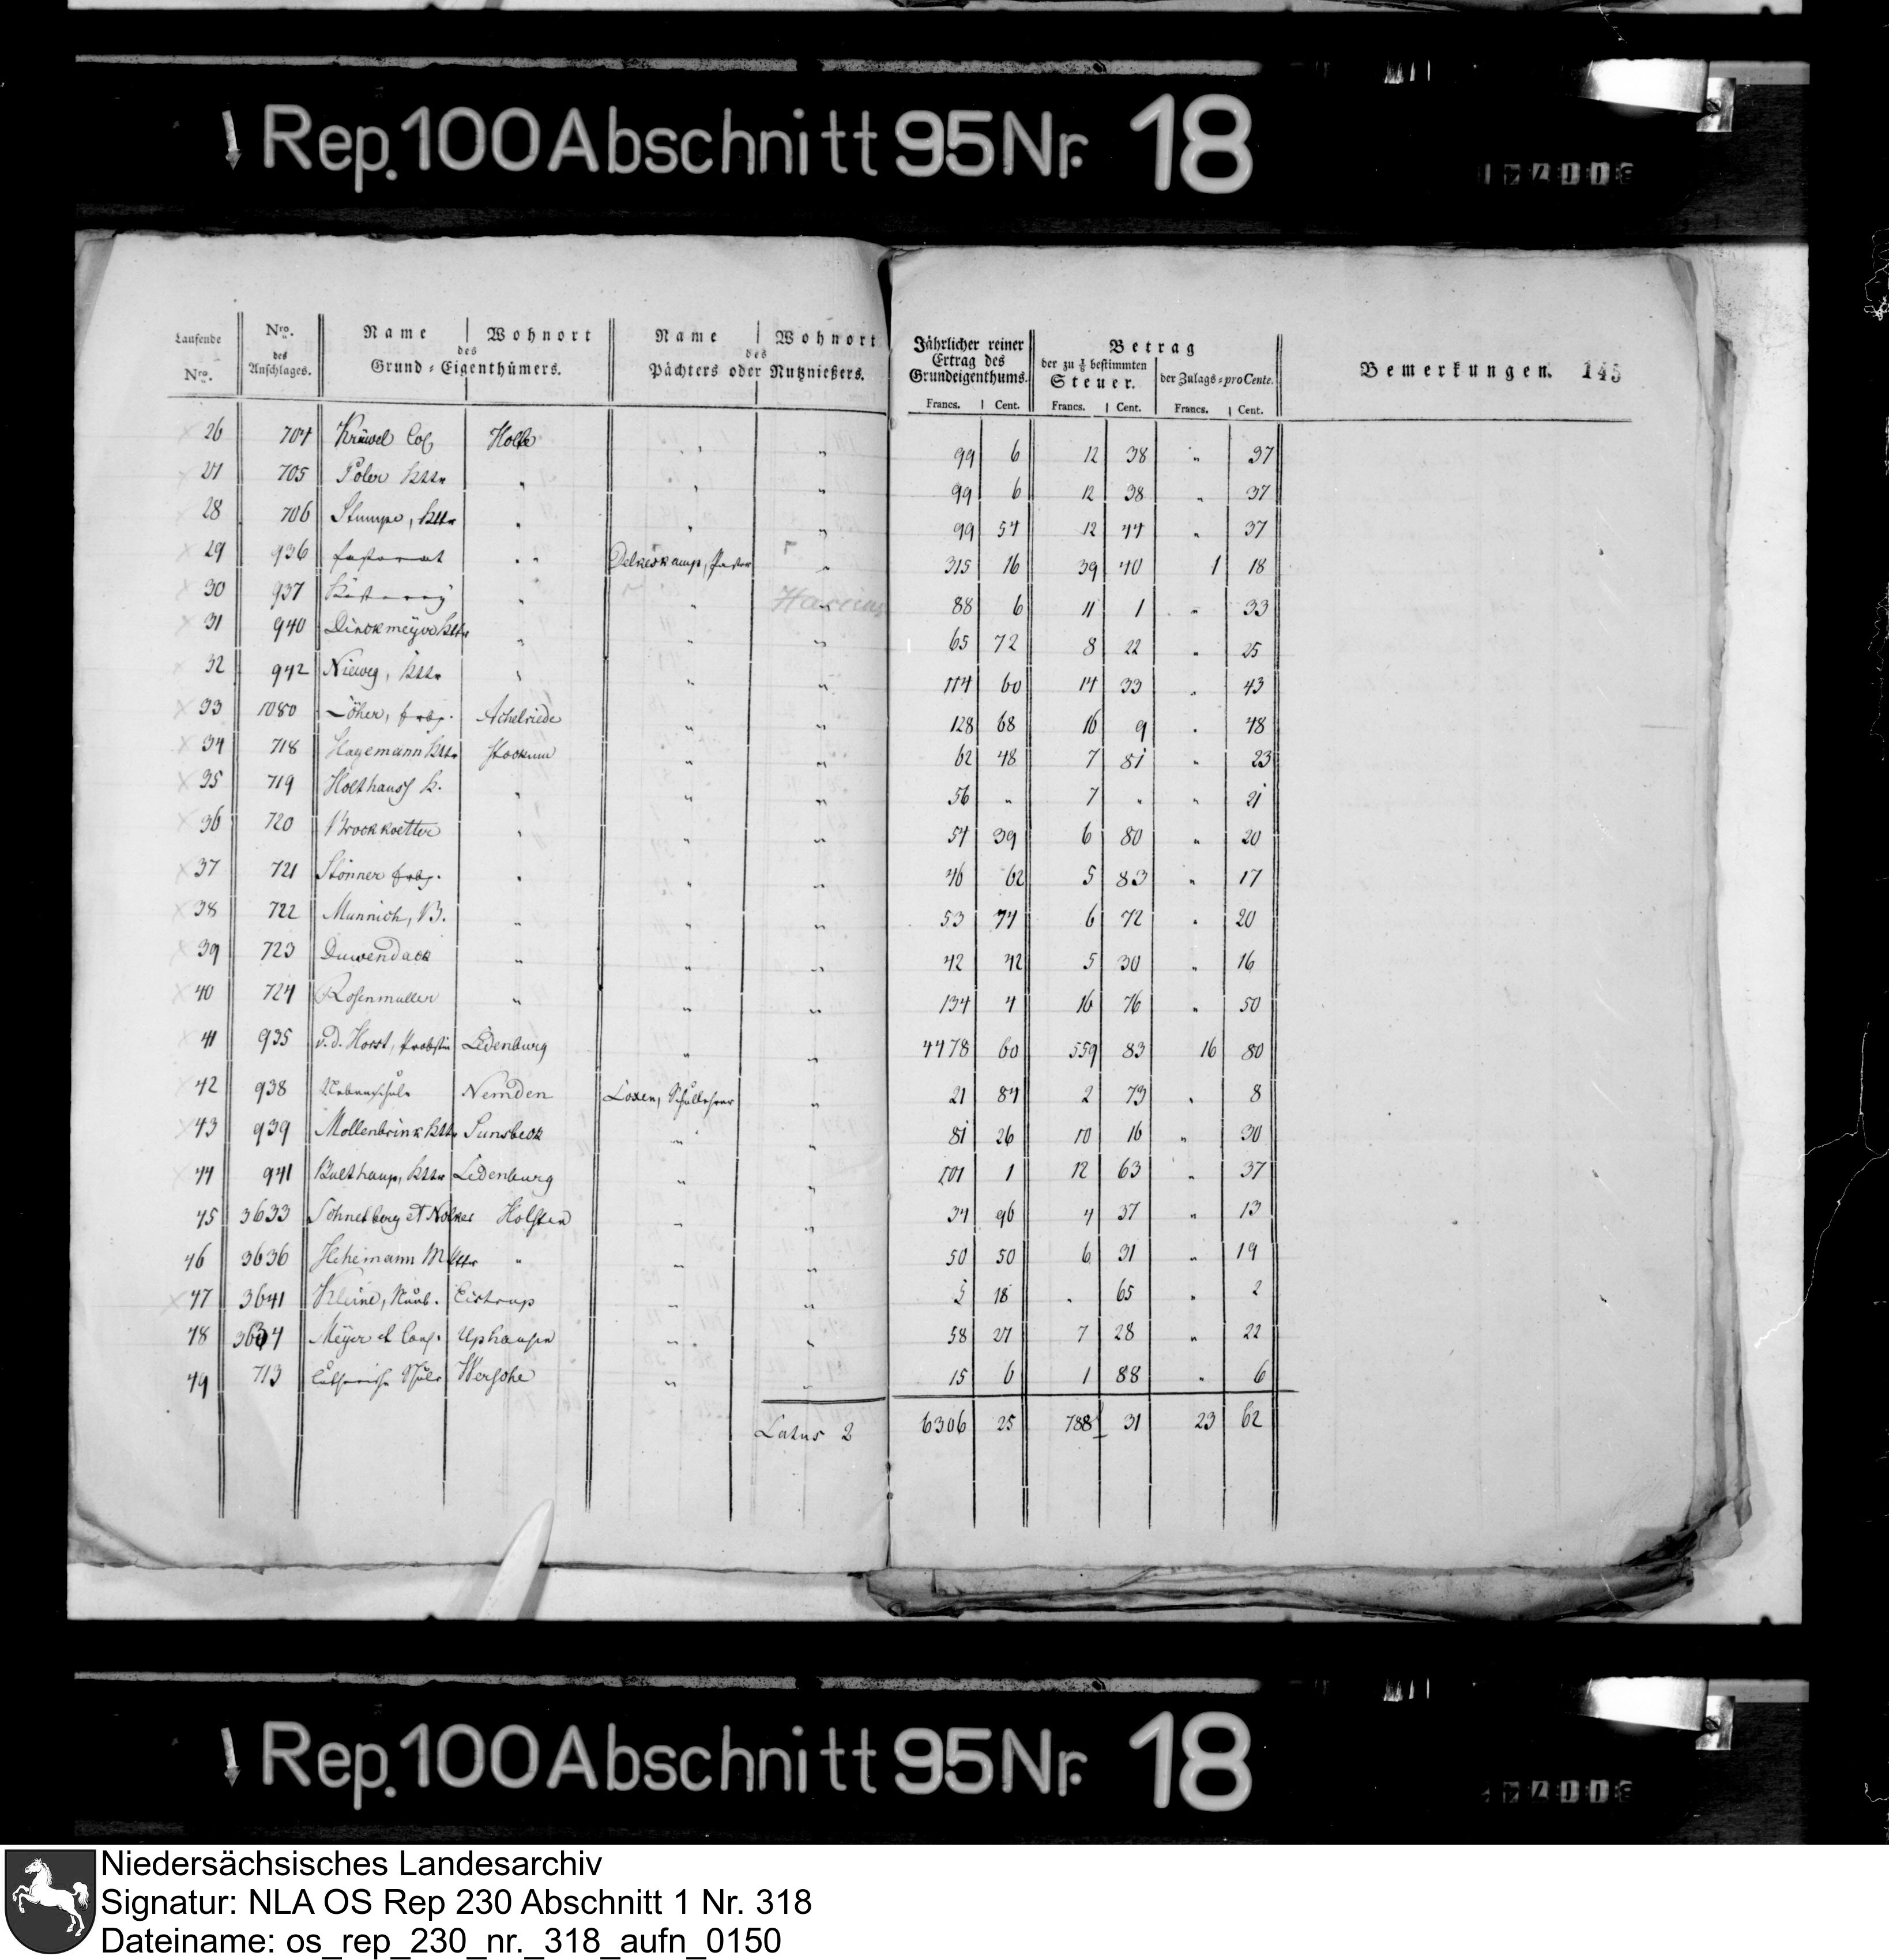 Rep. 100 Abschnitt 95 Nr. 18
Laufende Nro. Nro. des Anschlages. Name Wohnort des Grund-Eigenthümers. Name Wohnort des Pächters oder Nutznießers. Jährlicher reiner Ertrag des Grundeigenthums. Betrag der zu 1/8 bestimmten Steuer. der Zulags-pro Cente. Bemerkungen. 145
Francs. Cent. Francs. Cent. Francs. Cent.
26 704 Krüwel Col Holte „ „ 99 6 12 38 „ 37
27 705 Poler Kttr „ „ „ 99 6 12 38 „ 37
28 706 Stumpe, Kttr „ „ „ 99 54 12 44 „ 37
29 936 Pastorat „ Delkeskamp, Pastor „ 315 16 39 40 1 18
30 937 Küsterey „ „ „ 88 6 11 1 „ 33
31 940 Dinckmeyer Kttr „ „ „ 65 72 8 22 „ 25
32 942 Nieweg, Kttr „ „ „ 114 60 14 33 „ 43
33 1080 Löher, Achelriede „ „ 128 68 16 9 „ 48
34 718 Hagemann Kttr Stockum „ „ 62 48 7 81 „ 23
35 719 Holthaus K. „ „ „ 56 „ 7 „ „ 21
36 720 Brockkoetter „ „ „ 54 39 6 80 „ 20
37 721 Stönner „ „ „ 46 62 5 83 „ 17
38 722 Munnich, B. „ „ „ 53 74 6 72 „ 20
39 723 Duwendack „ „ „ 42 42 5 30 „ 16
40 724 Rosenmuller „ „ „ 134 4 16 76 „ 50
41 935 v.d. Horst, Probstin Ledenburg „ „ 4478 60 559 83 16 80
42 938 Nebenschule Nemden Loxen, Schullehrer „ 21 84 2 73 „ 8
43 939 Mollenbrink Kttr Sunsbeck „ „ 81 26 10 16 „ 30
44 941 Bulthaup, Kttr Ledenburg „ „ 101 1 12 63 „ 37
45 3633 Schnetberg et Nolker Holsten „ „ 34 96 4 37 „ 13
46 3636 Hehemann M „ „ „ 50 50 6 31 „ 19
47 3641 Kleine, Neub. Eistrup „ „ 5 18 „ 65 „ 2
48 3634 Meyer et Cons. Uphausen „ „ 58 27 7 28 „ 22
49 713 Lutherische Schule Wersche „ „ 15 6 1 88 „ 6
Latus 2 6306 25 788 31 23 62
Rep. 100 Abschnitt 95 Nr. 18
Niedersächsisches Landesarchiv
Signatur: NLA OS Rep 230 Abschnitt 1 Nr. 318
Dateiname: os_rep_230_nr._318_aufn_0150